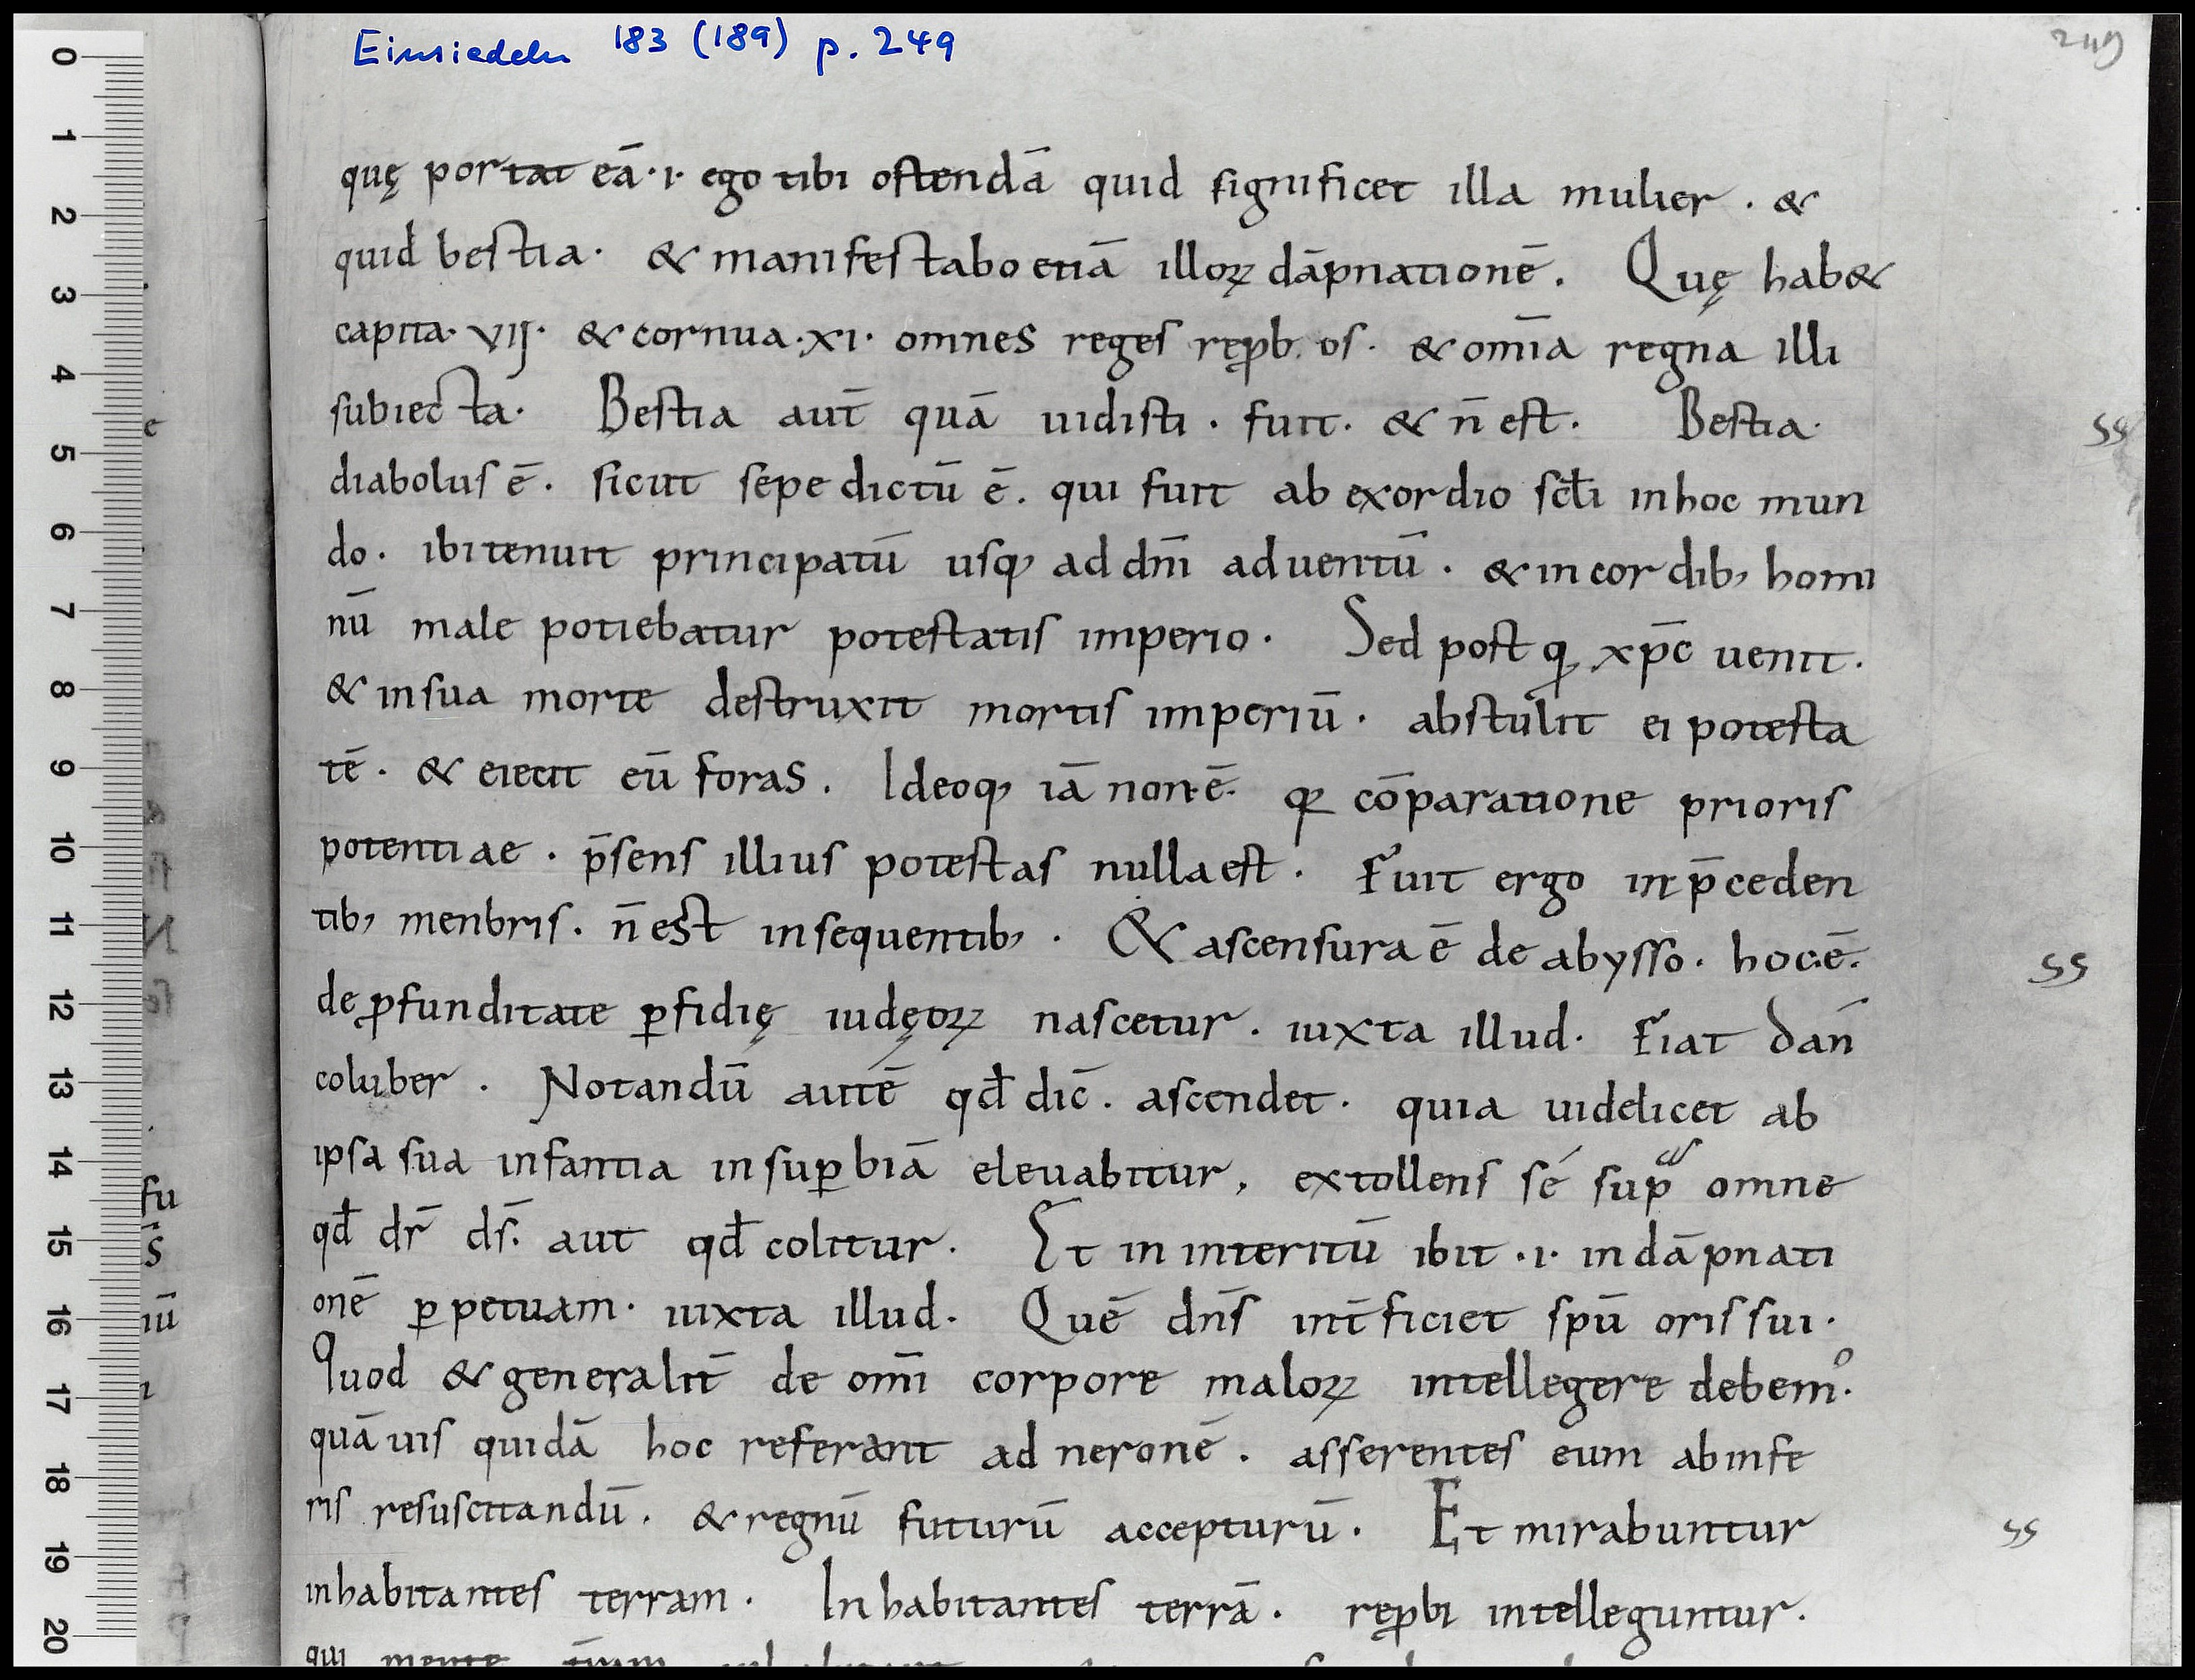 Einsiedeln 183 (189) p. 249
249
quę portat eā·i· ego tibi ostendā quid significet illa mulier . &
quid bestia· & manifestabo etiā illoꝝ dāpnationē. Quę hab&
capita· VIJ· & cornua·XI· omnes reges reꝓb.os· & om̄ia regna illi
subiecta· Bestia aut̄ quā uidisti . fuit· & n̄ est. Bestia· ss
diabolus ē. sicut sepe dictū ē. qui fuit ab exordio scł̄i inhoc mun
do· ibi tenuit principatū usq; ad dn̄i aduentū· & in cordib; homi
nū male potiebatur potestatis imperio· Sed post q̨ xp̄c uenit.
& in sua morte destruxit mortis imperiū· abstulit ei potesta
tē· & eiecit eū foras. Ideoq; iā non·ē· qꝛ cōparatione prioris
potentiae · p̄sens illius potestas nulla est· Fuit ergo in p̄ceden
tib; menbris· n̄ est in sequentib;· & ascensura ē de abysso· hoc·ē· ss
de ꝓfunditate ꝑfidię iudęoꝝ nascetur· iuxta illud· Fiat dán
coluber· Notandū autē qđ dic̄. ascendet· quia uidelicet ab
ipsa sua infantia in suꝑbiā eleuabitur, extollens sé sup omne
qđ dr̄ ds̄. aut qđ colitur· Et in interitū ibit ·i· in dāpnati
onē ꝑpetuam· iuxta illud· Quē dn̄s int̄ficiet spū oris sui·
Quod & generalit̄ de om̄i corpore maloꝝ intellegere debemꝰ·
quāuis quidā hoc referant ad neronē· asserentes eum ab infe
ris resuscitandū. & regnū futurū accepturū· Et mirabuntur ss
inhabitantes terram· Inhabitantes terrā· reꝓbi intelleguntur·
qui mente